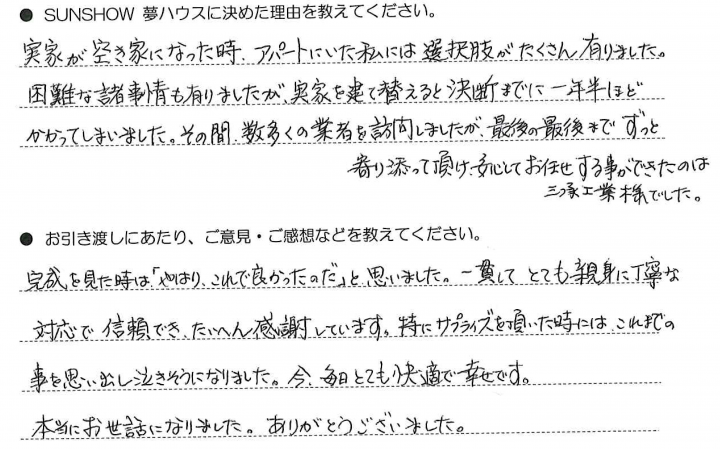 ● SUNSHOW 夢ハウスに決めた理由を教えてください。
実家が空き家になった時、アパートにいた私には選択肢がたくさん有りました。
困難な諸事情も有りましたが、実家を建て替えると決断までに一年半ほど
かかってしまいました。その間、数多くの業者を訪問しましたが、最後の最後まで ずっと
寄り添って頂け、安心してお任せする事ができたのは
三承工業様でした。
● お引き渡しにあたり、ご意見・ご感想などを教えてください。
完成を見た時は「やはり、これで良かったのだ」と思いました。一貫して とても親身に丁寧な
対応で 信頼でき、たいへん感謝しています。特にサプライズを頂いた時には、これまでの
事を思い出し泣きそうになりました。今、毎日とても快適で幸せです。
本当にお世話になりました。ありがとうございました。